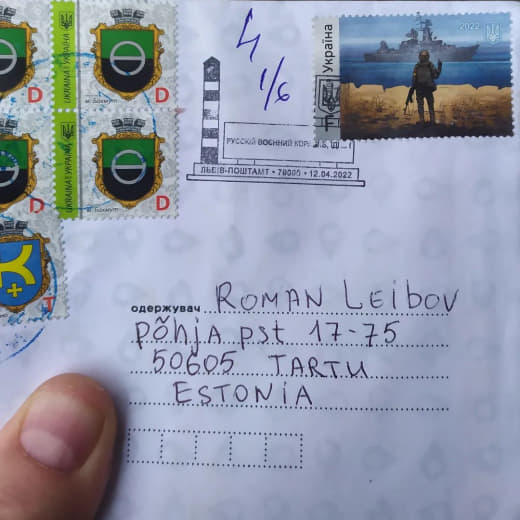 UKRAINA УКРАЇНА
м. Бахмут
D
UKRAINA УКРАЇНА
м. Бахмут
D
D
D
T
4
1/6
Україна
2022
РУССКІЙ ВОЄННИЙ КОРАБ
ЛЬВІВ-ПОШТАМТ • 79000 • 12.04.2022
одержувач ROMAN LEIBOV
põhja pst 17-75
50605 TARTU
ESTONIA